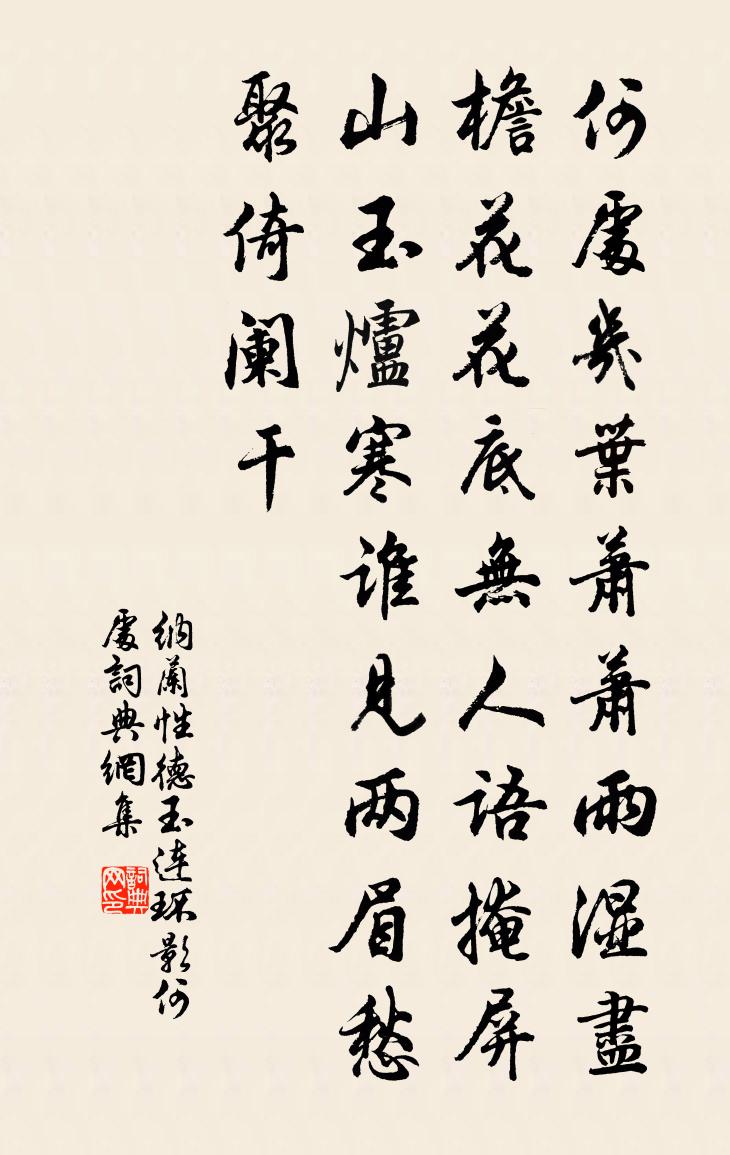 何處幾葉蕭蕭雨濕盡
檐花花底無人語掩屏
山玉爐寒誰見两眉愁
聚倚阑干
纳蘭性德玉连环影何
處詞典網集
詞典网印